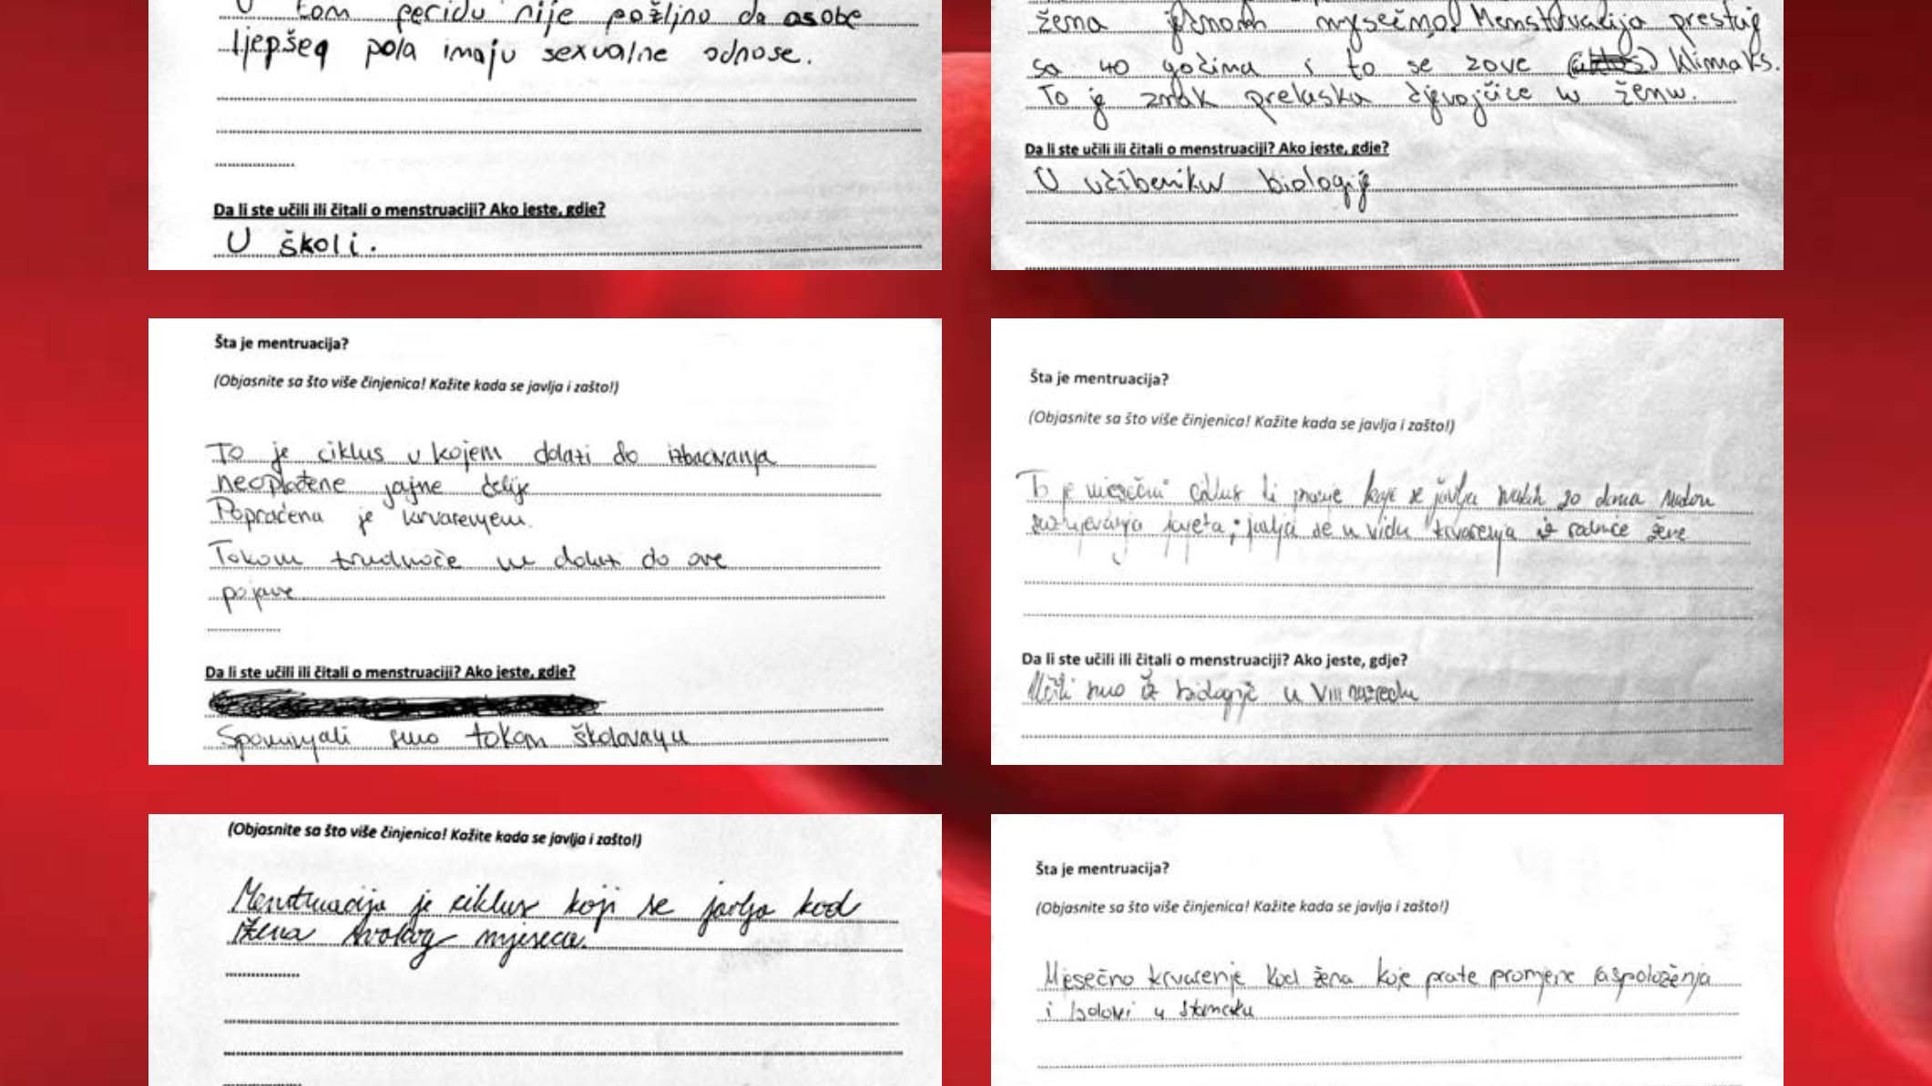 U tom peridu nije poželjno da osobe
ljepšeg pola imaju sexualne odnose.
Da li ste učili ili čitali o menstruaciji? Ako jeste, gdje?
U školi.
žena jednom mjesečno! Menstruacija prestaje
sa 40 godina i to se zove Klimaks.
To je znak prelaska djevojčice u ženu.
Da li ste učili ili čitali o menstruaciji? Ako jeste, gdje?
U učibeniku biologije
Šta je mentruacija?
(Objasnite sa što više činjenica! Kažite kada se javlja i zašto!)
To je ciklus u kojem dolazi do izbacivanja
neoplođene jajne ćelije
Popraćena je krvarenjem.
Tokom trudnoće ne dolazi do ove
pojave
Da li ste učili ili čitali o menstruaciji? Ako jeste, gdje?
Spominjali smo tokom školovanja
Šta je mentruacija?
(Objasnite sa što više činjenica! Kažite kada se javlja i zašto!)
To je mjesečni ciklus koji se javlja dana
javlja se u vidu krvarenja iz žene
Da li ste učili ili čitali o menstruaciji? Ako jeste, gdje?
Učili smo iz biologije u VIII razredu
(Objasnite sa što više činjenica! Kažite kada se javlja i zašto!)
Menstruacija je ciklus koji se javlja kod
žena svakog mjeseca.
Šta je mentruacija?
(Objasnite sa što više činjenica! Kažite kada se javlja i zašto!)
Mjesečno krvarenje kod žena koje prate promjene raspoloženja
i bolovi u stomaku